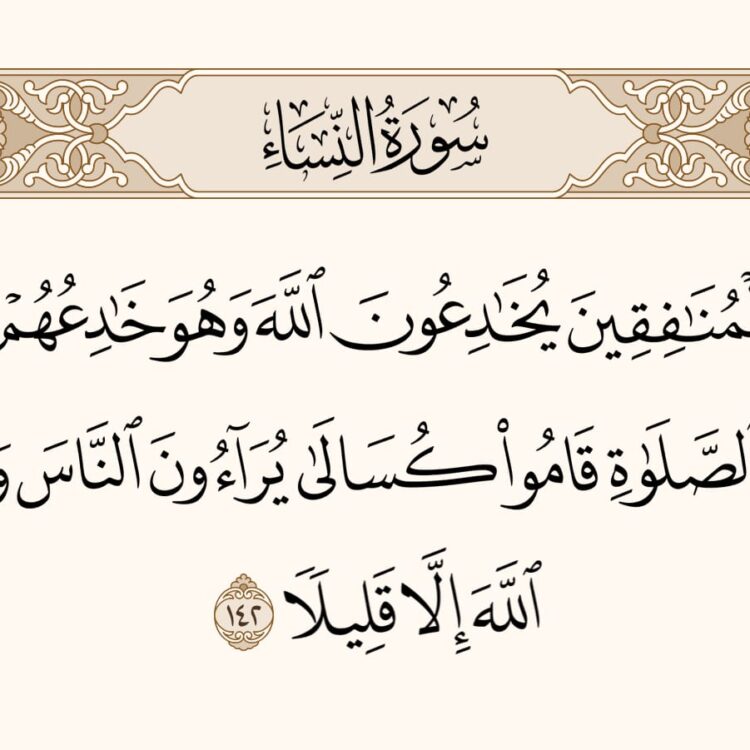 سُورَةُ النِّسَاءِ
لْمُنَٰفِقِينَ يُخَٰدِعُونَ ٱللَّهَ وَهُوَ خَٰدِعُهُمْ
ٱلصَّلَوٰةِ قَامُوا۟ كُسَالَىٰ يُرَآءُونَ ٱلنَّاسَ وَ
ٱللَّهَ إِلَّا قَلِيلًا ١٤٢